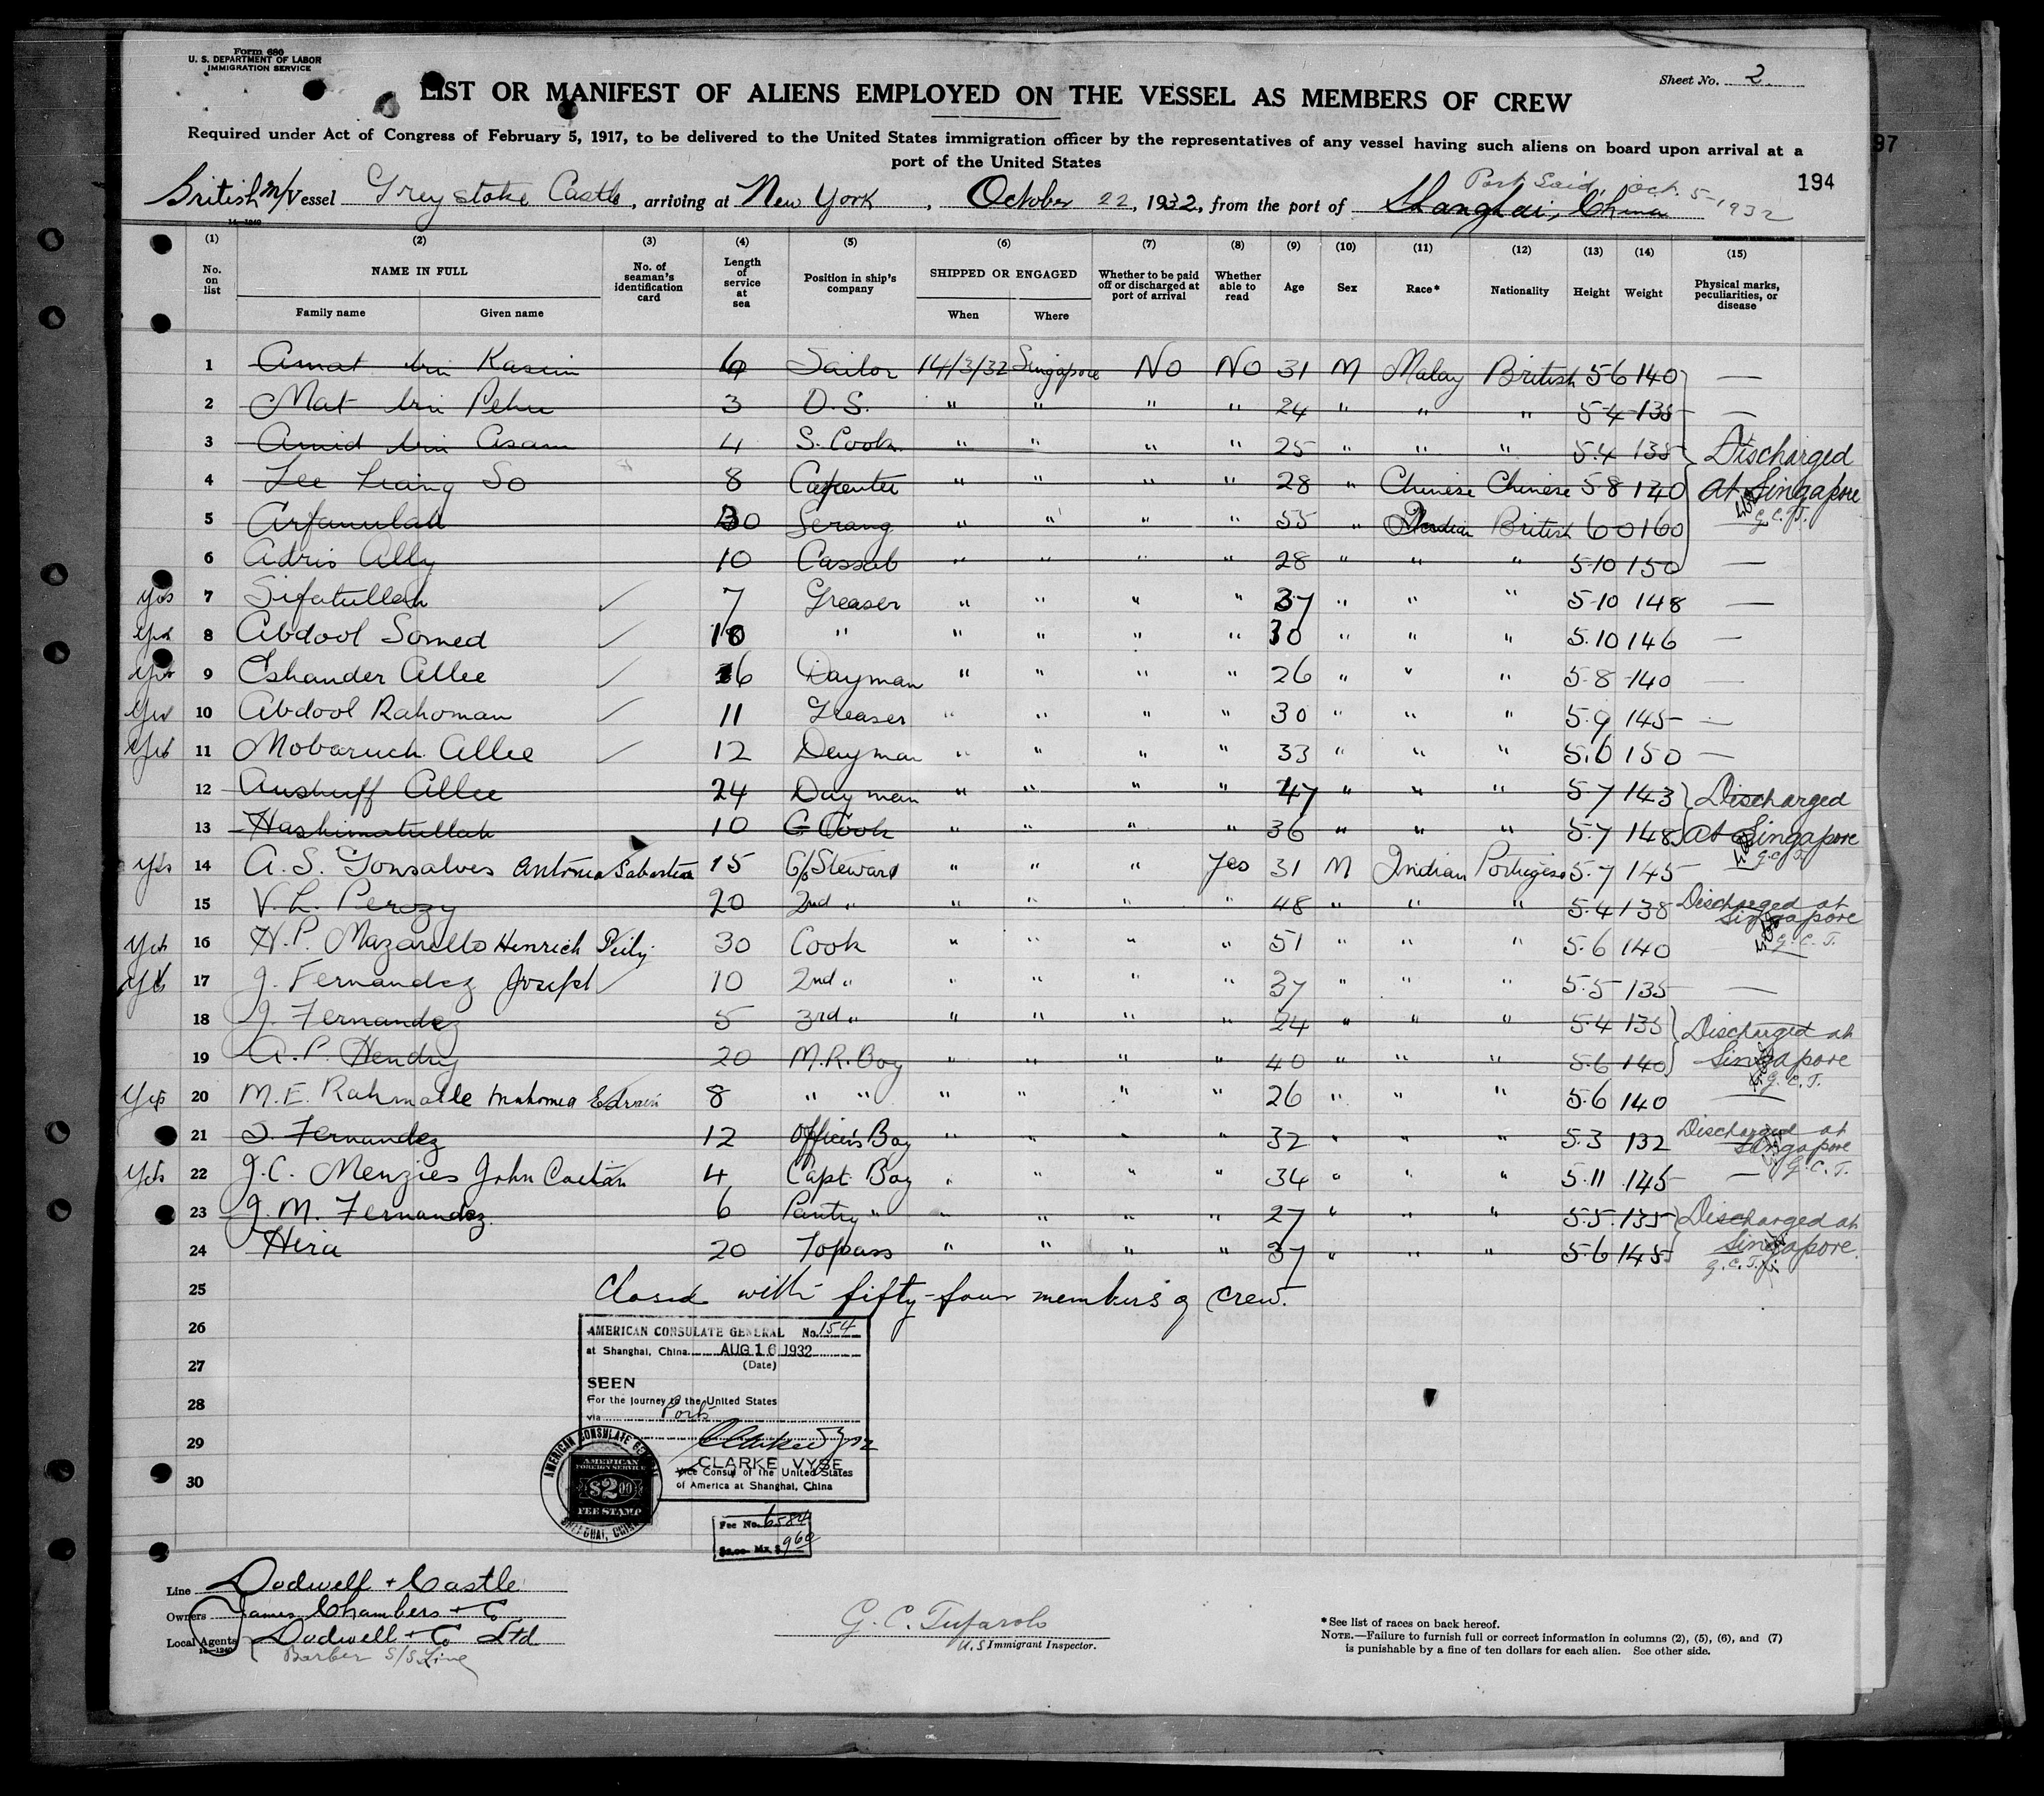 Form 680
U. S. DEPARTMENT OF LABOR
IMMIGRATION SERVICE
Sheet No. 2
LIST OR MANIFEST OF ALIENS EMPLOYED ON THE VESSEL AS MEMBERS OF CREW
Required under Act of Congress of February 5, 1917, to be delivered to the United States immigration officer by the representatives of any vessel having such aliens on board upon arrival at a
port of the United States
97
194
Port Said, Oct. 5-1932
British M/Vessel Greystoke Castle, arriving at New York, October 22, 1932, from the port of Shanghai, China
(1) (2) (3) (4) (5) (6) (7) (8) (9) (10) (11) (12) (13) (14) (15)
No. on list NAME IN FULL No. of seaman's identification card Length of service at sea Position in ship's company SHIPPED OR ENGAGED Whether to be paid off or discharged at port of arrival Whether able to read Age Sex Race* Nationality Height Weight Physical marks, peculiarities, or disease
Family name Given name When Where
1 Amat bin Kasim Sailor 14/3/32 Singapore No No 31 M Malay British 5-6 140 —
2 Mat bin Pehu 3 O.S. " " " " 24 " " " 5-4 135 —
3 Amid bin Asam 4 S. Cook " " " " 25 " " " 5.4 135 Discharged
4 Lee Liang So 8 Carpenter " " " " 28 " Chinese Chinese 5-8 140 at Singapore
5 Arfanulah 30 Serang " " " " 55 " Indian British 6-0 160 G.C.T.
6 Adris Ally 10 Cassab " " " " 28 " " " 5-10 150 —
Yes 7 Sifatullah ✓ 7 Greaser " " " " 37 " " " 5-10 148 —
Yes 8 Abdool Somed ✓ 10 " " " " " 30 " " " 5.10 146 —
Yes 9 Eshander Allee ✓ 6 Dayman " " " " 26 " " " 5-8 140 —
Yes 10 Abdool Rahoman ✓ 11 Greaser " " " " 30 " " " 5.9 145 —
Yes 11 Mobaruch Allee ✓ 12 Dayman " " " " 33 " " " 5.6 150 —
12 Aushruff Allee 24 Dayman " " " " 47 " " " 5-7 143 Discharged
13 Hashimatullah 10 C Cook " " " " 36 " " " 5.7 148 at Singapore
G.C.T.
Yes 14 A. S. Gonsalves Antonio Sabastian 15 Steward " " " Yes 31 M Indian Portugese 5-7 145
15 V. L. Perozy 20 2nd " " " " " 48 " " " 5.4 138 Discharged at Singapore
G.C.T.
Yes 16 H. P. Mazarello Henrich 30 Cook " " " " 51 " " " 5.6 140
Yes 17 J. Fernandez Joseph ✓ 10 2nd " " " " " 37 " " " 5.5 135 —
18 J. Fernandez 5 3rd " " " " " 24 " " " 5.4 135 Discharged at
19 A. P. Hendry 20 M.R. Boy " " " " 40 " " " 5.6 140 Singapore
G.C.T.
Yes 20 M. E. Rahmalle 8 " " " " " " 26 " " " 5.6 140 —
21 Fernandez 12 Officer's Boy " " " " 32 " " " 5.3 132 Discharged at Singapore
G.C.T.
Yes 22 J. C. Menzies John Caetan 4 Capt. Boy " " " " 34 " " " 5.11 145 —
23 J. M. Fernandez 6 Pantry " " " " " 27 " " " 5.5 135 Discharged at
24 Hira 20 Topass " " " " 37 " " " 5.6 145 Singapore.
G.C.T.
25 Closed with fifty-four members of crew.
26
27
28
29
30
AMERICAN CONSULATE GENERAL No. 154
at Shanghai, China AUG 16 1932
(Date)
SEEN
For the journey to the United States
via Ports
CLARKE VYSE
Vice Consul of the United States
of America at Shanghai, China
AMERICAN CONSULATE GENERAL
AMERICAN
FOREIGN SERVICE
$2.00
FEE STAMP
SHANGHAI, CHINA
Fee No. 6584
$2.00 Mx. $ 9.60
Line Dodwell + Castle
Owners James Chambers + Co
Local Agents Dodwell + Co Ltd
Barber S/S Line
14—1240
G. C. Tufarolo
U. S Immigrant Inspector.
*See list of races on back hereof.
NOTE.—Failure to furnish full or correct information in columns (2), (5), (6), and (7)
is punishable by a fine of ten dollars for each alien. See other side.